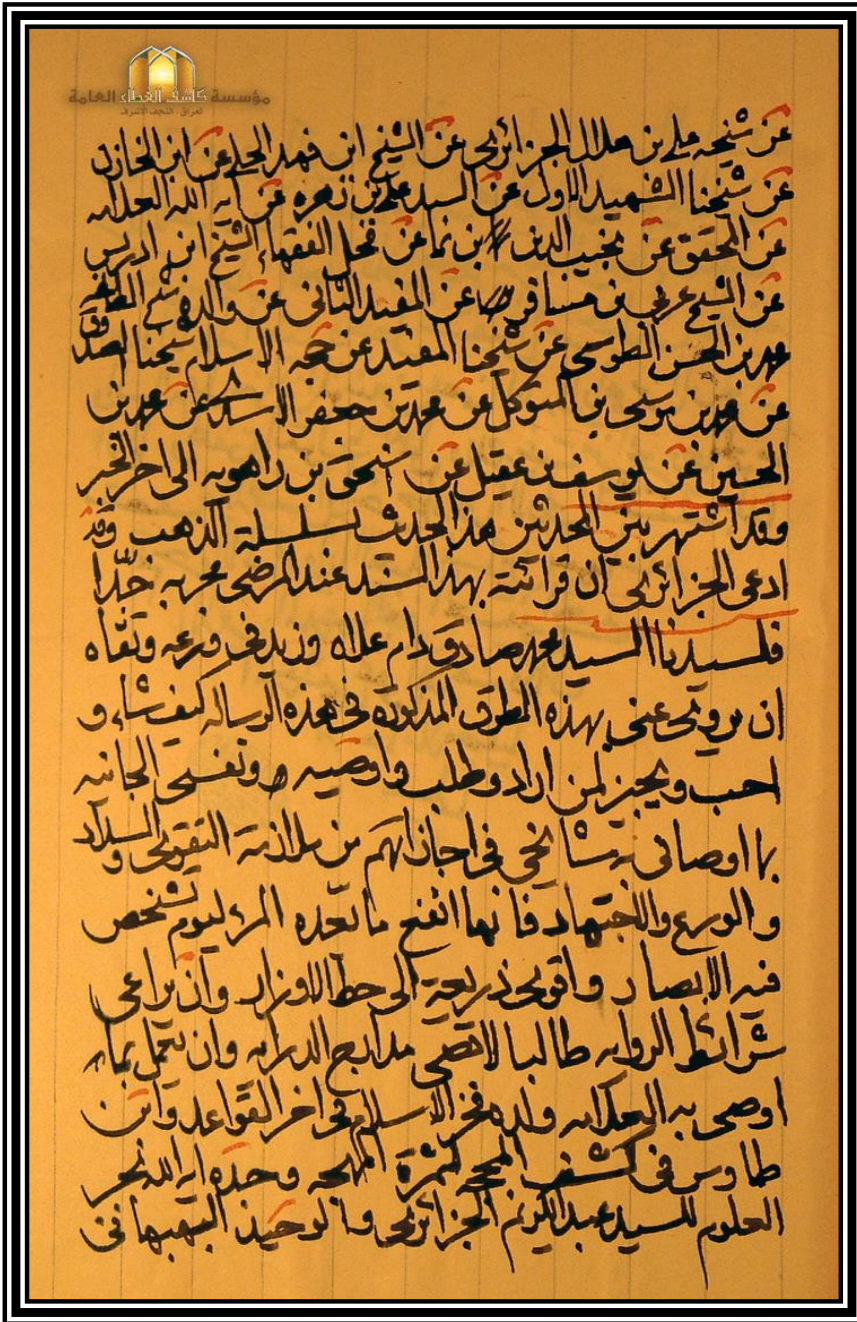 مؤسسة كاشف الغطاء العامة
العراق - النجف الاشرف
عن شيخه علي بن هلال الجزائري عن الشيخ ابن فهد الحلي عن ابن الخازن
عن شيخنا الشهيد الاول عن السيد علي بن زهره عن آية الله العلامه
عن المحقق عن نجيب الدين بن نما عن فحل الفقهاء الشيخ ابن ادريس
عن الشيخ عربي بن مسافر عن المفيد الثاني عن والده شيخ الطائفه
محمد بن الحسن الطوسي عن شيخنا المفيد عن حجه الاسلام شيخنا الصدوق
عن محمد بن موسى بن المتوكل عن محمد بن جعفر الاسدي عن محمد بن
الحسين عن يوسف بن عقيل عن اسحق بن راهويه الى اخر الخبر
وقد اشتهر بين المحدثين هذا الحديث بسلسلة الذهب وقد
ادعى الجزائري ان قرائته بهذا السند عند المرضى مجربه جدا
فلسيدنا السيد محمد صادق دام علاه وزيد في ورعه وتقاه
ان يروي عني بهذه الطرق المذكورة في هذه الرساله كيف شاء و
احب ويجيز لمن اراد وطلب واوصيه ونفسي الجانيه
بما اوصاني مشايخي في اجازاتهم من ملازمة التقوى والسداد
و الورع والاجتهاد فانها انفع ما تعده المرء ليوم تشخص
فيه الابصار واقوى ذريعة الى حط الاوزار وان يراعي
شرائط الروايه طالبا لاقصى مدارج الدرايه وان يعمل بما
اوصى به العلامه ولده فخر الاسلام في اخر القواعد وابن
طاوس في كشف المحجه لثمرة المهجه وحده ايه الله بحر
العلوم للسيد عبد الكريم الجزائري والوحيد البهبهاني